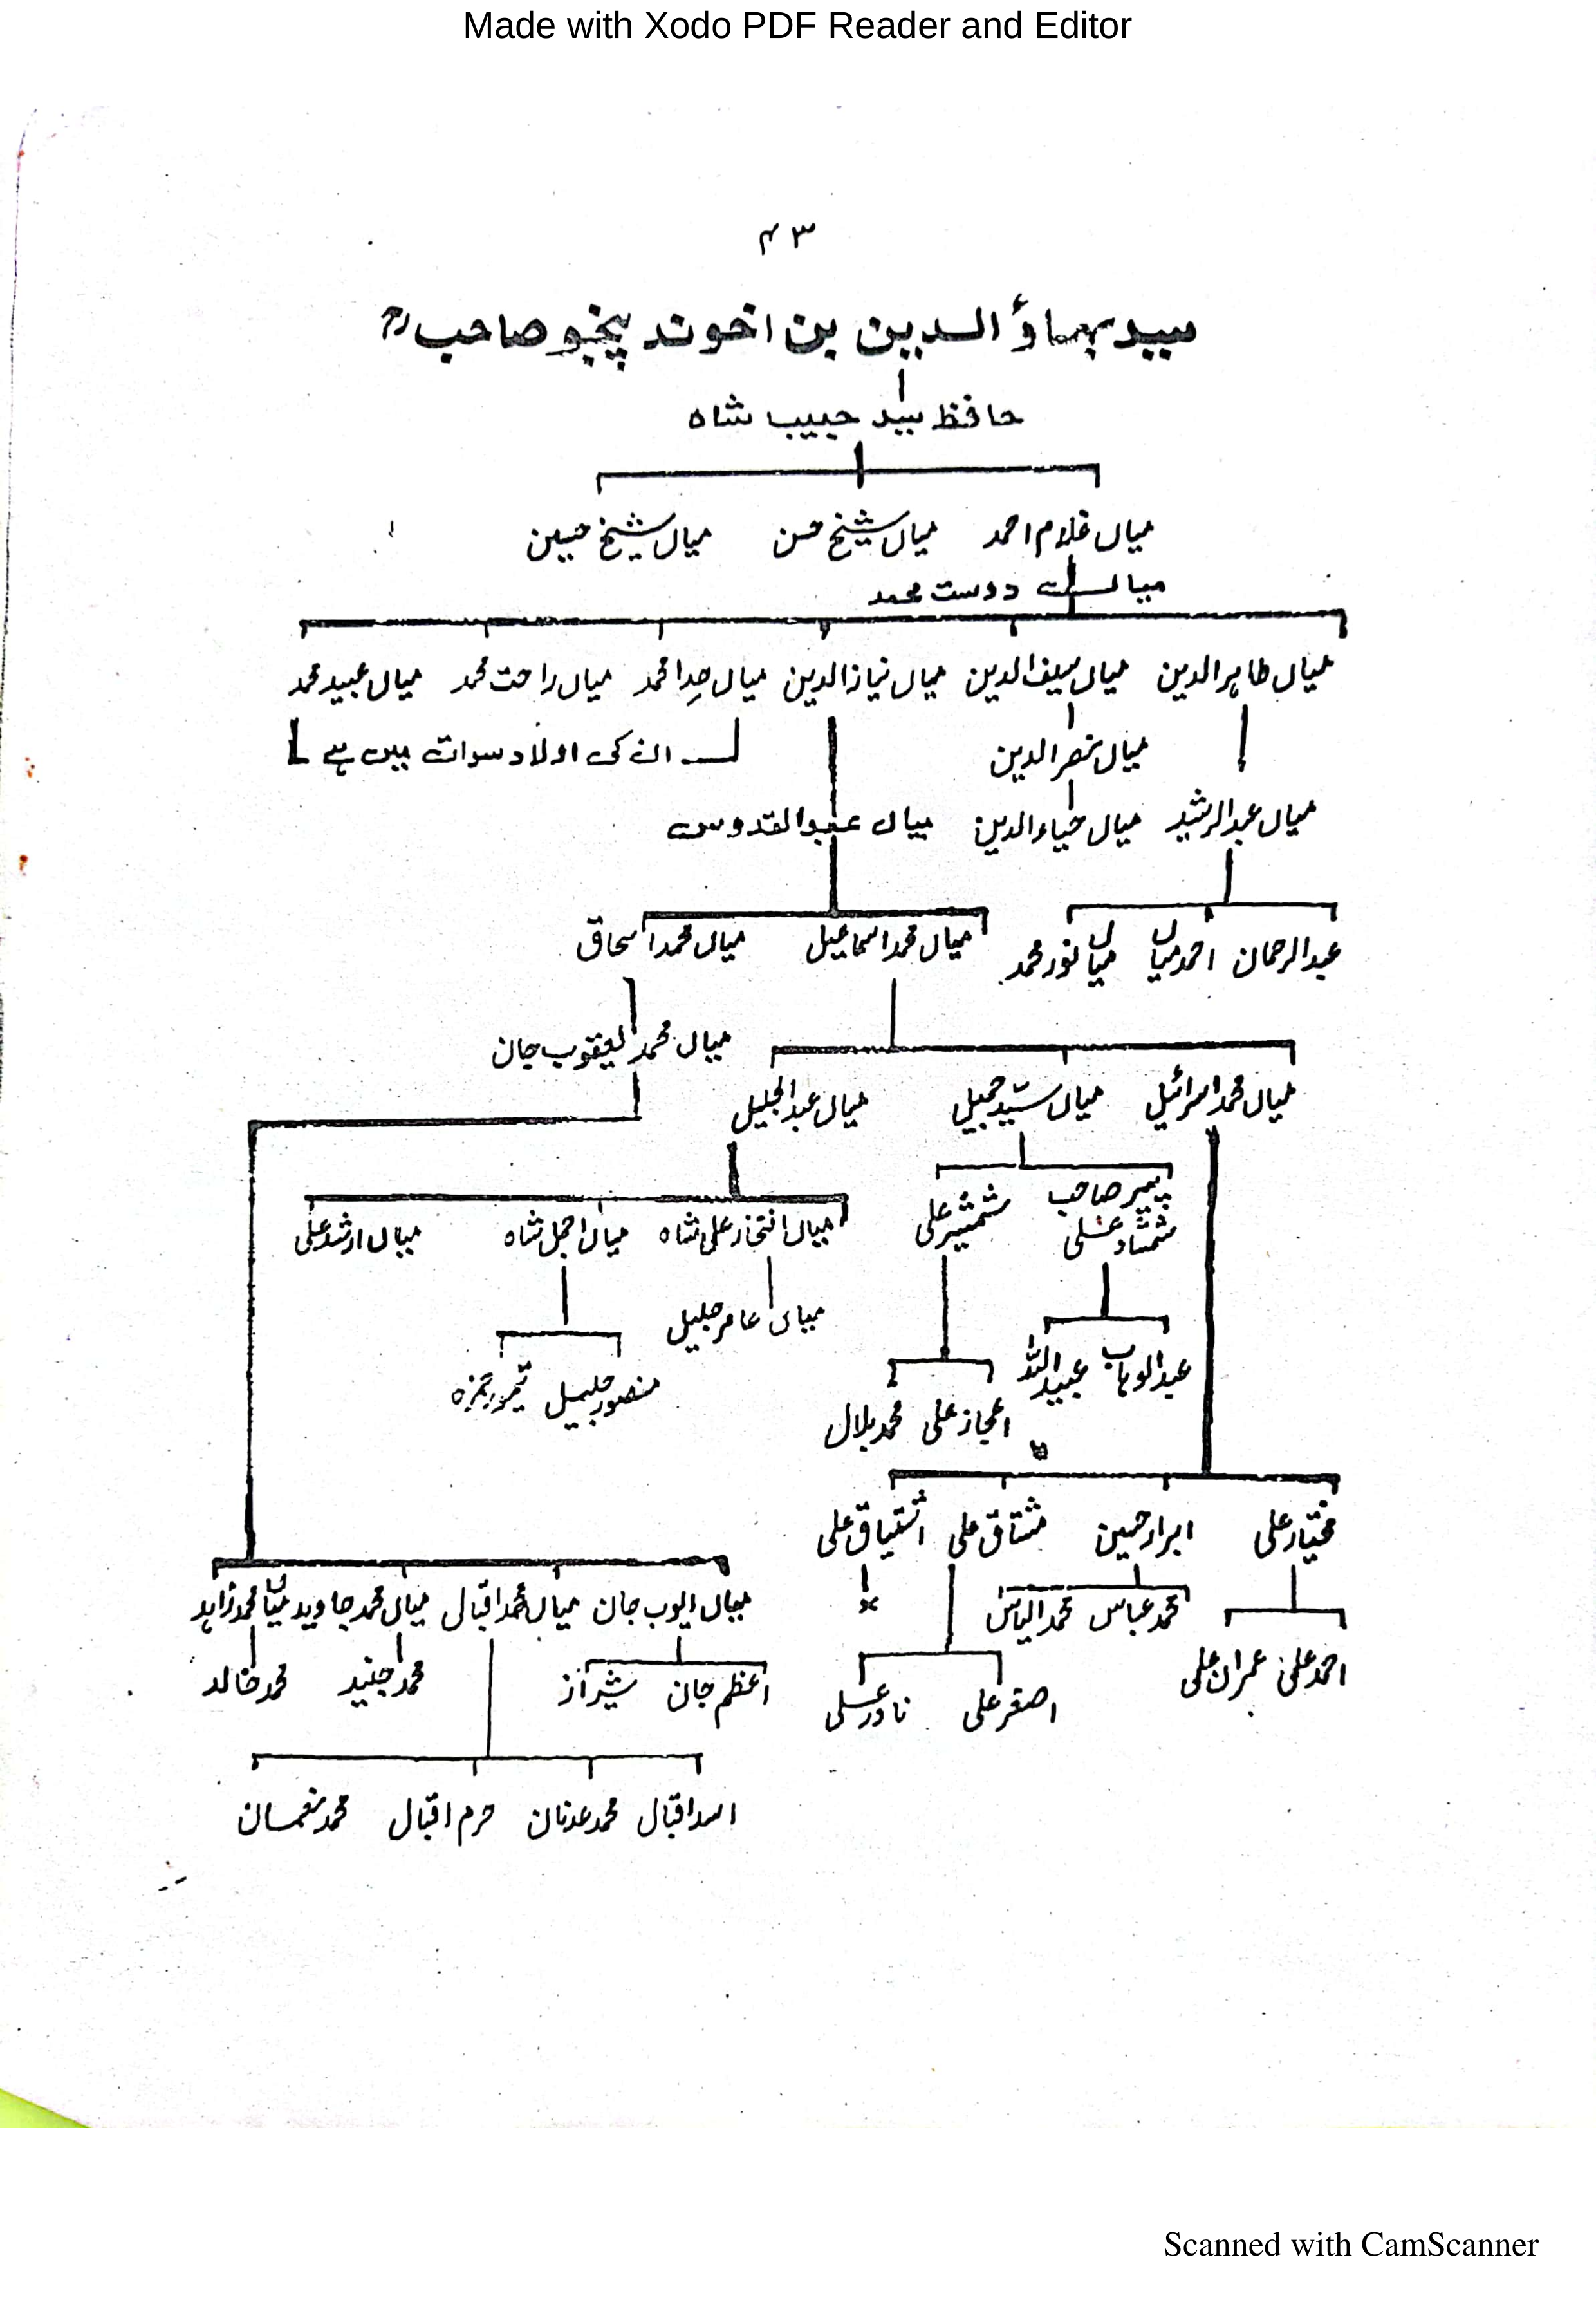 Made with Xodo PDF Reader and Editor
۴۳
سید بہاؤ الدین بن اخوند پنجو صاحبؒ
حافظ سید حبیب شاہ
میاں غلام احمد میاں شیخ حسن میاں شیخ حسین
میاں دوست محمد
میاں طاہر الدین میاں سیف الدین میاں نیاز الدین میاں محمد میاں راحت محمد میاں عبید محمد
ان کی اولاد سوات میں ہے
میاں نصر الدین
میاں عبدالرشید میاں ضیاء الدین میاں عبدالقدوس
عبدالرحمان احمد میاں میاں نور محمد میاں محمد اسماعیل میاں محمد اسحاق
میاں محمد یعقوب جان
میاں محمد اسرائیل میاں سید جمیل میاں عبدالجلیل
پیر صاحب
شمشاد علی شمشیر علی
میاں افتخار علی شاہ میاں اجمل شاہ میاں ارشد علی
میاں عامر جلیل
عبدالوہاب عبید اللہ
منصور جلیل تیمور حمزہ
اعجاز علی محمد بلال
مختیار علی ابرار حسین مشتاق علی اشتیاق علی
میاں ایوب جان میاں محمد اقبال میاں محمد جاوید میاں محمد زاہد
محمد عباس محمد الیاس
احمد علی عمران علی
اعظم جان شیراز محمد جنید محمد خالد
اصغر علی نادر علی
اسد اقبال محمد عدنان حرم اقبال محمد نعمان
Scanned with CamScanner